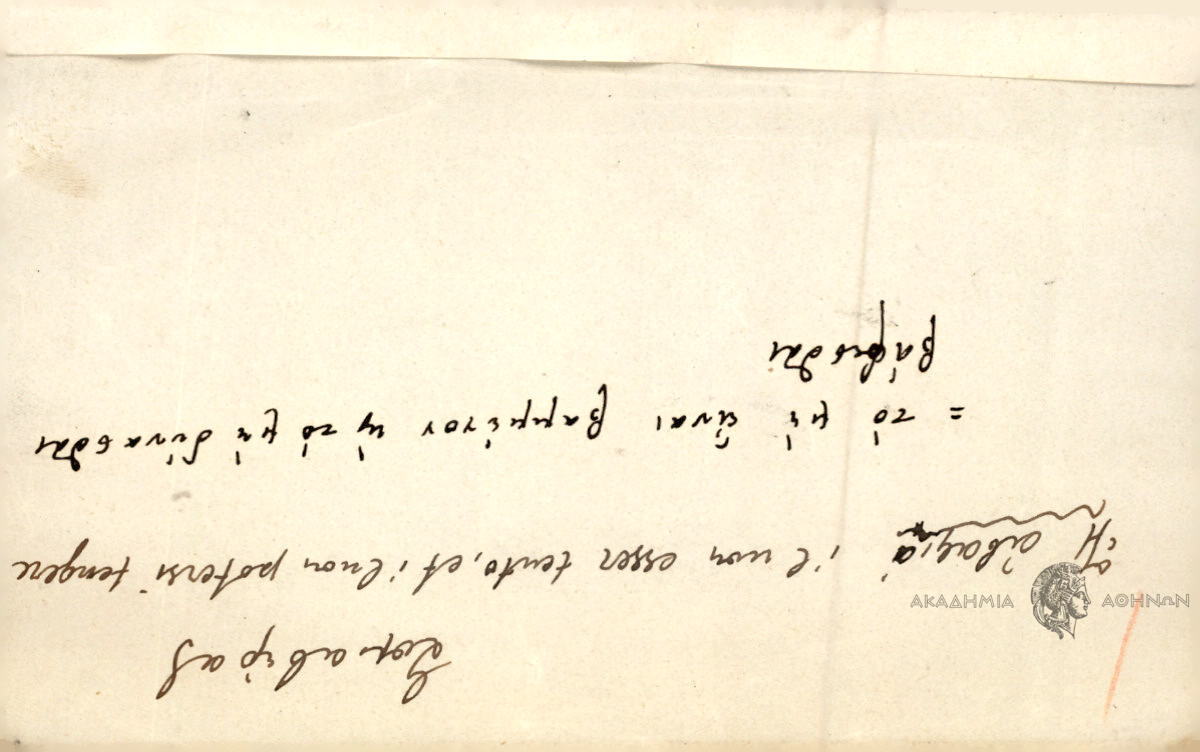 Σομαβέρας
Ἡ ἀβαφιά il non esser tento, et il non potersi tengere
= τὸ μὴ εἶναι βαμμένον ϗ τὸ μὴ δύνασθαι
βάφεσθαι
ΑΚΑΔΗΜΙΑ ΑΘΗΝΩΝ